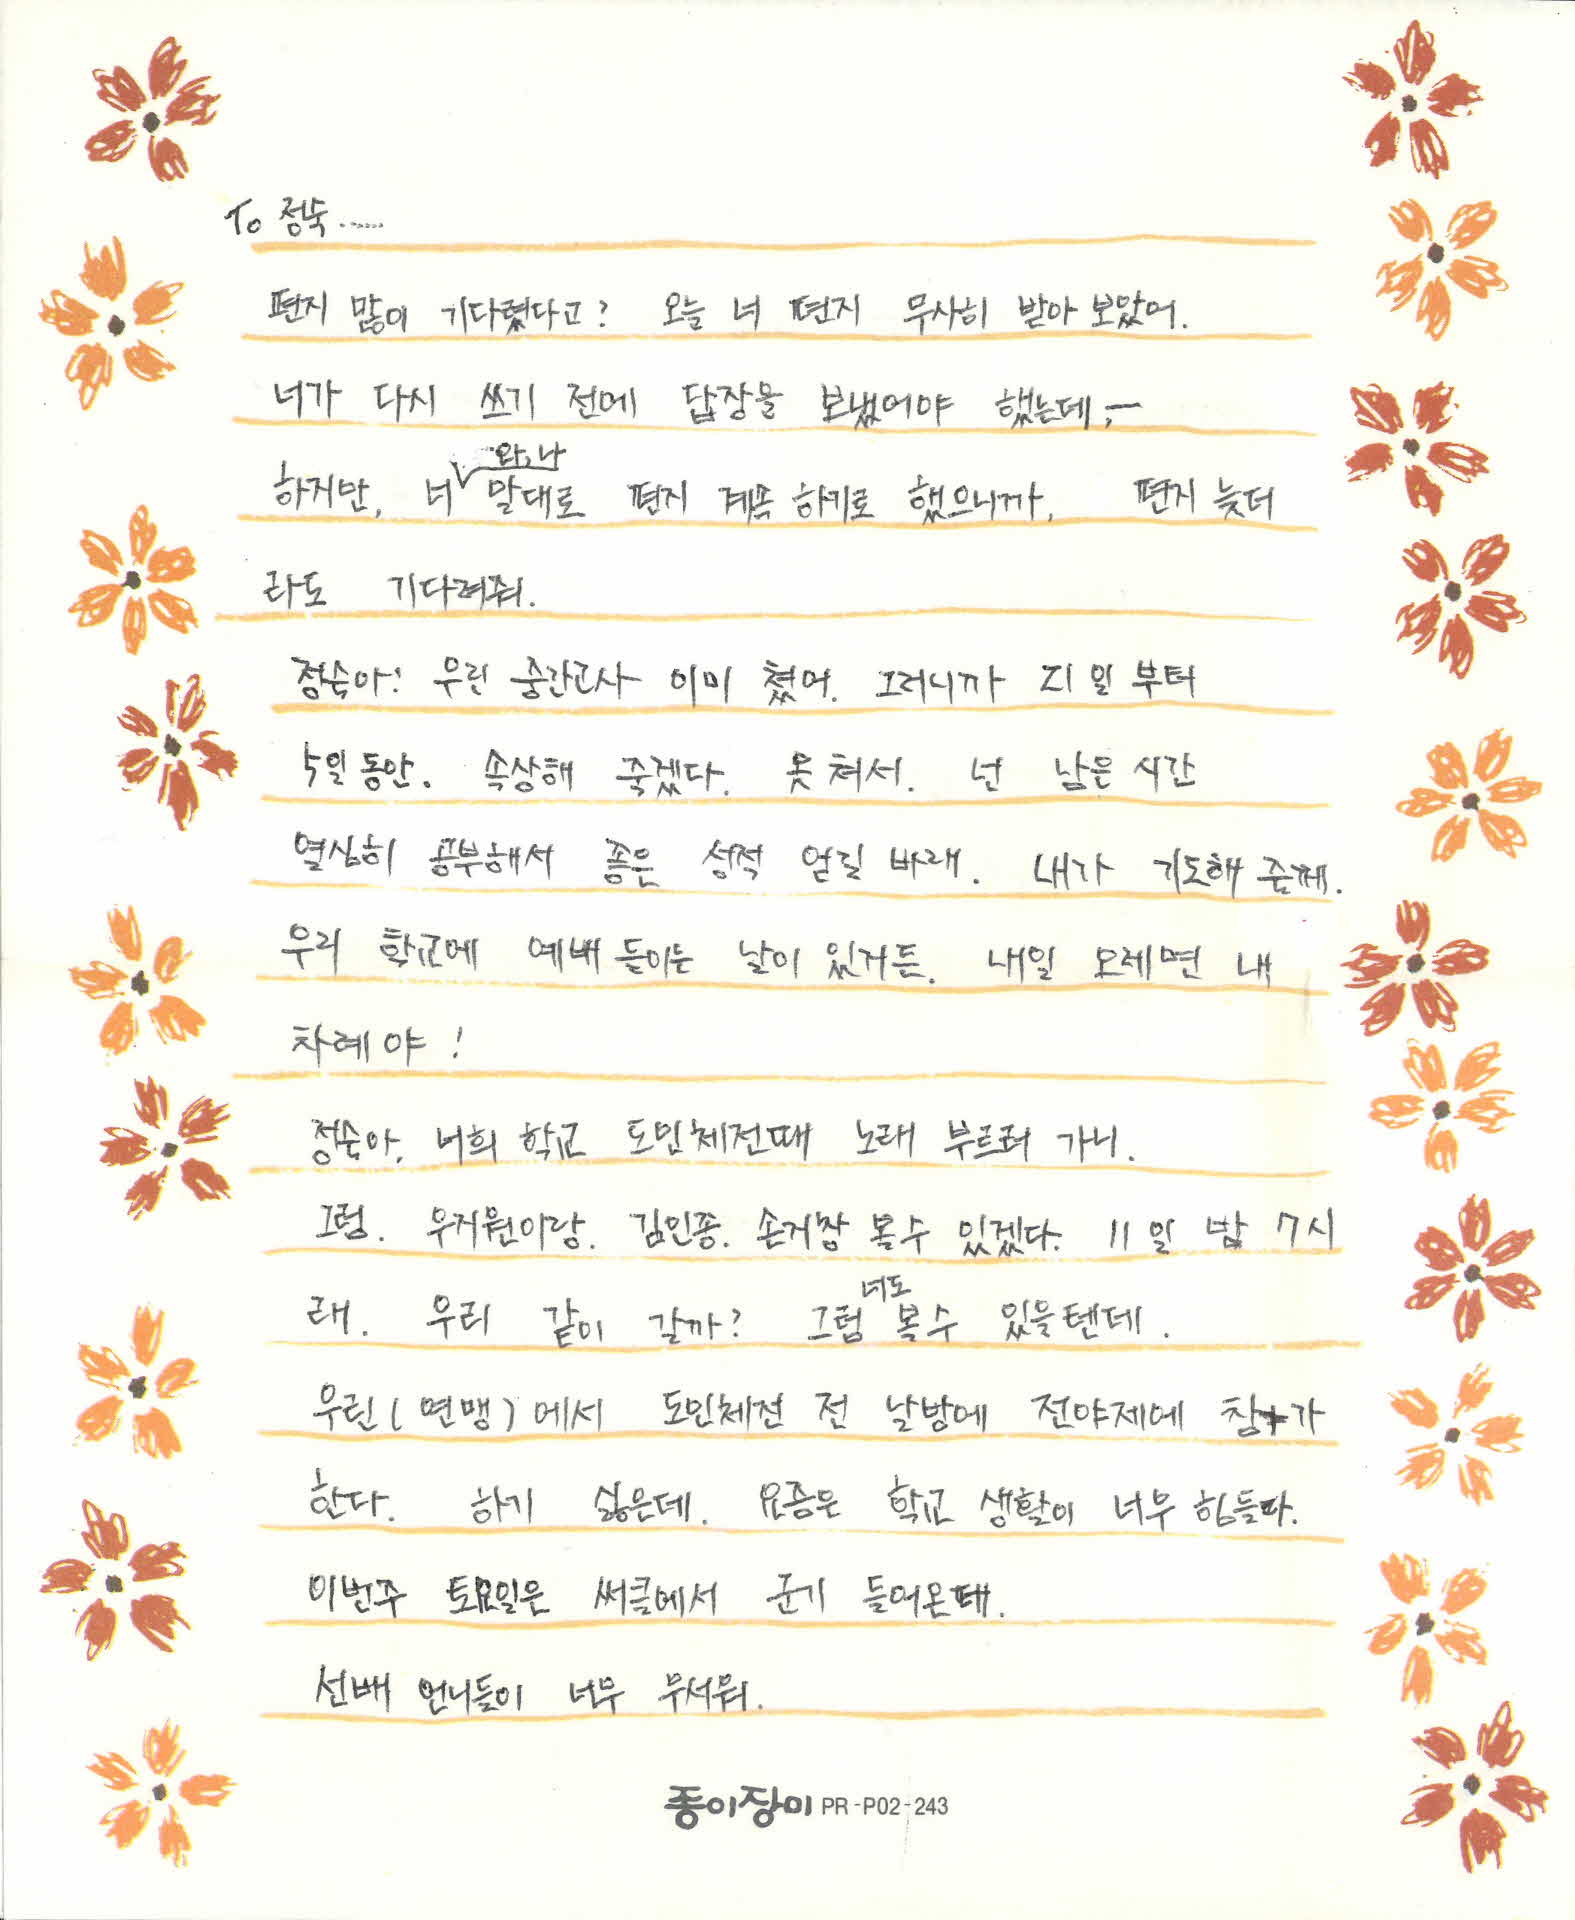 To 정숙......
편지 많이 기다렸다고? 오늘 너 편지 무사히 받아 보았어.
너가 다시 쓰기 전에 답장을 보냈어야 했는데,ㅡ
하지만, 너와,나 말대로 편지 계속 하기로 했으니까, 편지 늦더
라도 기다려줘.
정숙아! 우린 중간고사 이미 쳤어. 그러니까 21일 부터
5일 동안. 속상해 죽겠다. 못 쳐서. 넌 남은 시간
열심히 공부해서 좋은 성적 얻길 바래. 내가 기도해 줄께.
우리 학교에 예배 들이는 날이 있거든. 내일 모레면 내
차례야!
정숙아. 너희 학교 도민체전때 노래 부르러 가니.
그럼. 우지원이랑. 김민종. 손지창 볼수 있겠다. 11일 밤 7시
래. 우리 같이 갈까? 그럼 너도 볼수 있을텐데.
우린(연맹)에서 도민체전 전 날밤에 전야제에 참가
한다. 하기 싫은데. 요즘은 학교 생활이 너무 힘들다.
이번주 토요일은 써클에서 군기 들어온대.
선배 언니들이 너무 무서워.
종이장미 PR-P02-243